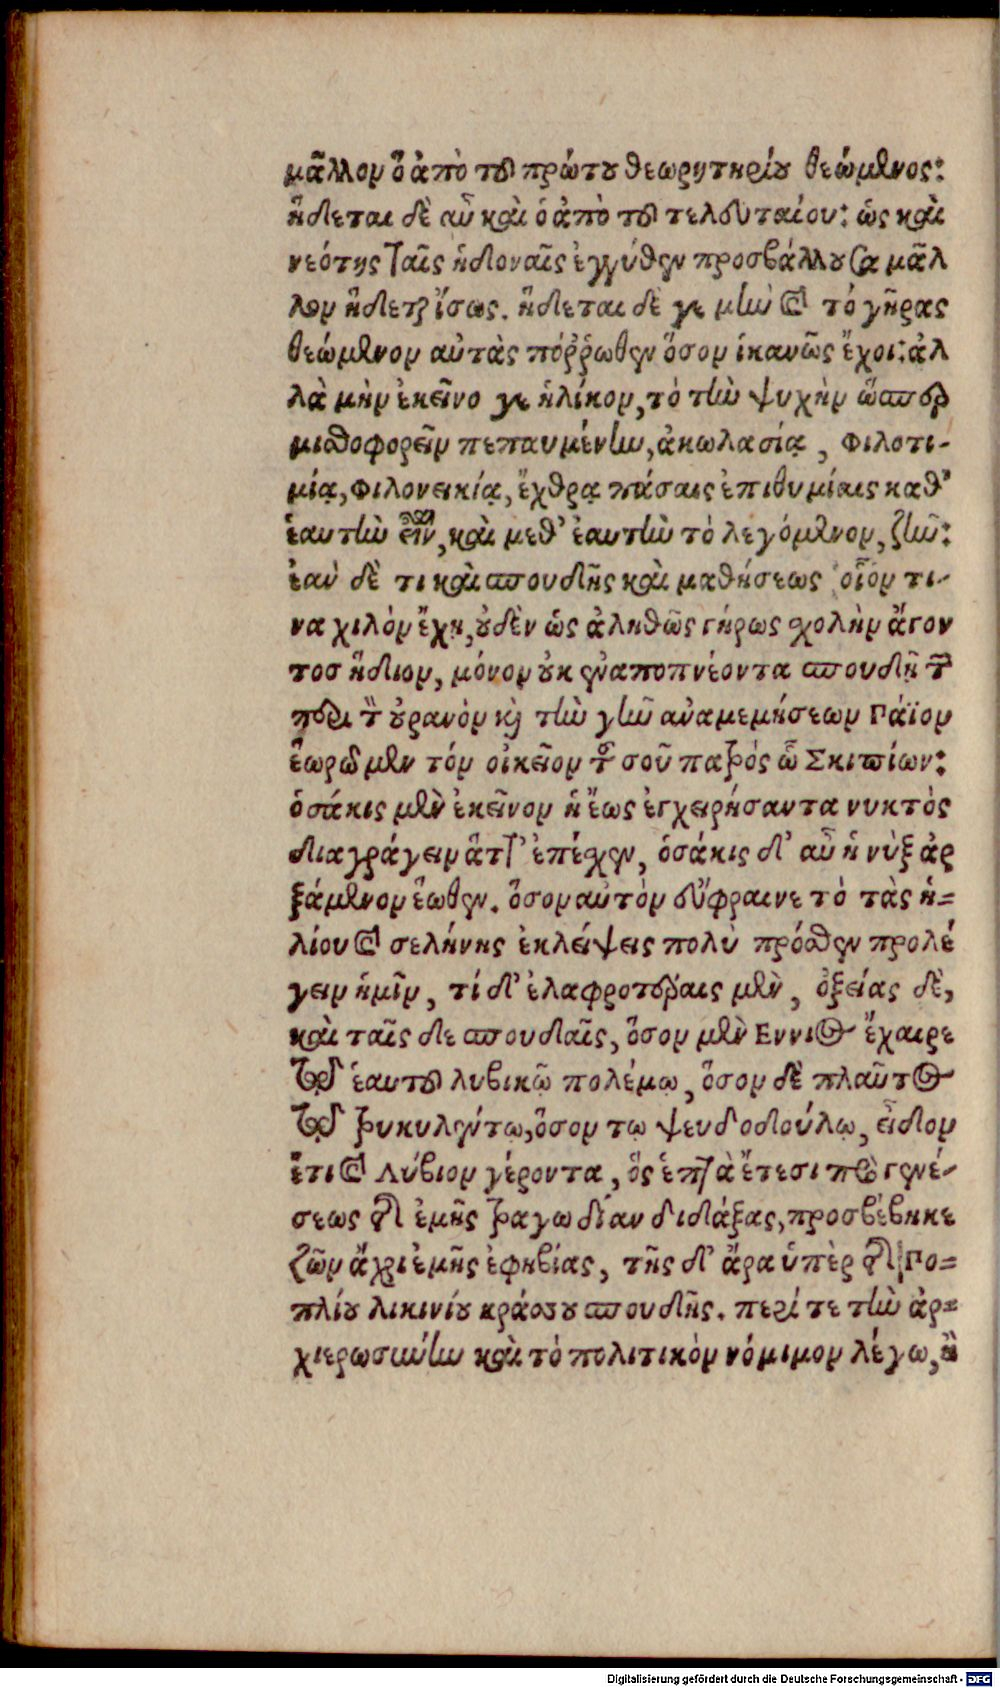 μᾶλλον ὃ ἀπὸ τοῦ πρώτου θεωρητηρίου θεώμενος:
ἥδεται δὲ αὖ καὶ ὁ ἀπὸ τοῦ τελευταίου: ὡς καὶ
νεότης ταῖς ἡδοναῖς ἐγγύθεν προσβάλλουσα μᾶλ
λον ἥδεται ἴσως. ἥδεται δέ γε μὴν καὶ τό γῆρας
θεώμενον αὐτὰς πόῤῥωθεν ὅσον ἱκανῶς ἔχοι: ἀλ
λὰ μὴν ἐκεῖνο γε ἡλίκον, τὸ τὴν ψυχὴν ὥσπερ
μισθοφορεῖν πεπαυμένην, ἀκωλασίᾳ, φιλοτι-
μίᾳ, φιλονεικίᾳ, ἔχθρᾳ πάσαις ἐπιθυμίαις καθ'
ἑαυτὴν εἶναι, καὶ μεθ' ἑαυτὴν τὸ λεγόμενον, ζῆν:
ἐὰν δὲ τι καὶ σπουδῆς καὶ μαθήσεως οἷόν τι-
να χιλὸν ἔχῃ, οὐδὲν ὡς ἀληθῶς γήρως σχολὴν ἄγον
τοσ ἥδιον, μόνον οὐκ ἐναποπνέοντα σπουδῇ τοῦ
περὶ τὸν οὐρανὸν καὶ τὴν γῆν αὐαμεμήσεων Γάϊον
ἑωρῶμεν τόν οἰκεῖον τοῦ σοῦ πατρός ὦ Σκιπίων:
ὁσάκις μὲν ἐκεῖνον ἡ ἕως ἐγχειρήσαντα νυκτὸς
διαγράγειν ἅττ' ἐπέσχεν, ὁσάκις δ' αὖ ἡ νὺξ ἀρ
ξάμενον ἕωθεν. ὅσον αὐτὸν εὔφραινε τὸ τὰς ἡ=
λίου καὶ σελήνης ἐκλείψεις πολὺ πρόσθεν προλέ
γειν ἡμῖν, τί δ' ἐλαφροτέραις μὲν, ὀξείας δὲ,
καὶ ταῖς δε σπουδαῖς, ὅσον μὲν Εννιος ἔχαιρε
τῷ ἑαυτοῦ λυβικῷ πολέμῳ, ὅσον δὲ πλαῦτος
τῷ τρυκυλέντῳ, ὅσον τῳ ψευδοδούλῳ, εἶδον
ἔτι καὶ Λύβιον γέροντα, ὃς ἑπτὰ ἔτεσι πρὸ γενέ-
σεως τῆς ἐμῆς τραγωδίαν διδάξας, προσβέβηκε
ζῶν ἄχρι ἐμῆς ἐφηβίας, τῆς δ' ἄρα ὑπὲρ τῆς Πο=
πλίου λικινίου κράσσου σπουδῆς. περί τε τὴν ἀρ=
χιερωσύνην καὶ τὸ πολιτικὸν νόμιμον λέγω, ἢ
Digitalisierung gefördert durch die Deutsche Forschungsgemeinschaft - DFG